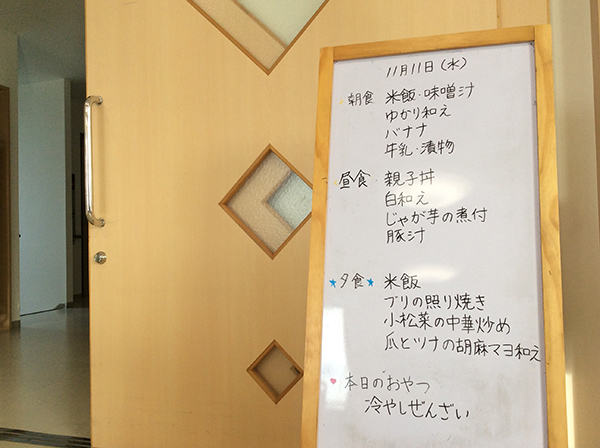 11月11日(水)
朝食 米飯・味噌汁
ゆかり和え
バナナ
牛乳・漬物
昼食 親子丼
白和え
じゃが芋の煮付
豚汁
★夕食★ 米飯
ブリの照り焼き
小松菜の中華炒め
瓜とツナの胡麻マヨ和え
♥本日のおやつ
冷やしぜんざい